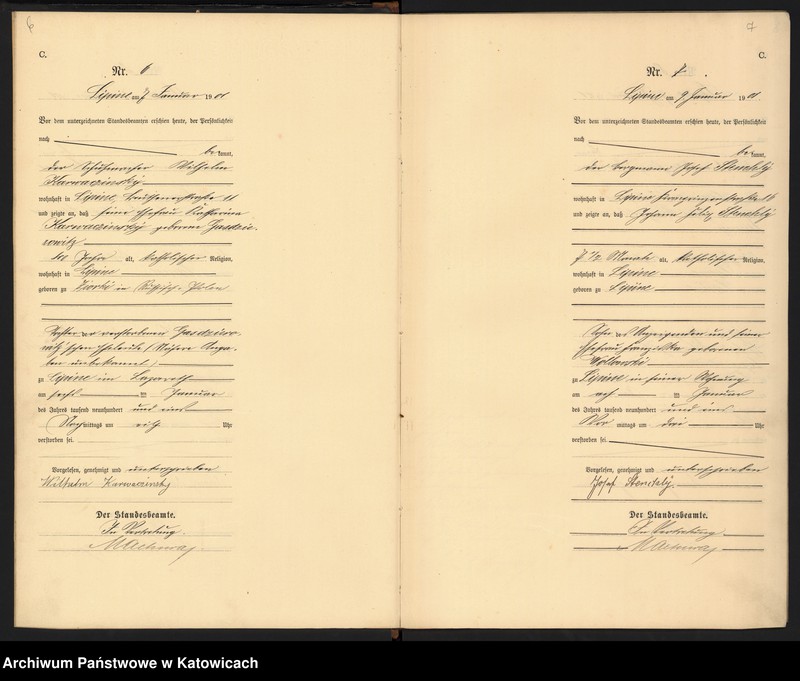 6
C.
Nr. 6
Lipine am 7 Januar 1901
Vor dem unterzeichneten Standesbeamten erschien heute, der Persönlichkeit
nach
be kannt,
der Wilhelm
Karwaczinsky
wohnhaft in Lipine, Beuthenerstraße 11
und zeigte an, daß seine Ehefrau Katharina
Karwaczinsky geborene
rowitz
Jahre alt, katholischer Religion,
wohnhaft in Lipine
geboren zu in Polen
Tochter der verstorbenen
Eheleute (Nähere Anga-
ben unbekannt)
zu Lipine im Lazareth
am sechs ten Januar
des Jahres tausend neunhundert und eins
Nachmittags um Uhr
verstorben sei.
Vorgelesen, genehmigt und unterschrieben
Wilhelm Karwaczinsky
Der Standesbeamte.
In Vertretung
7
C.
Nr. 7.
Lipine am 9 Januar 1901
Vor dem unterzeichneten Standesbeamten erschien heute, der Persönlichkeit
nach
be kannt,
der Bergmann Josef Stenitzky
wohnhaft in Lipine 16
und zeigte an, daß Johann Felix Stenitzky
7 1/2 Monate alt, katholischer Religion,
wohnhaft in Lipine
geboren zu Lipine
Sohn des Anzeigenden und seiner
Ehefrau Franziska geborenen
zu Lipine in seiner Wohnung
am acht ten Januar
des Jahres tausend neunhundert und eins
Vor mittags um drei Uhr
verstorben sei.
Vorgelesen, genehmigt und unterschrieben
Josef Stenitzky.
Der Standesbeamte.
In Vertretung
Archiwum Państwowe w Katowicach